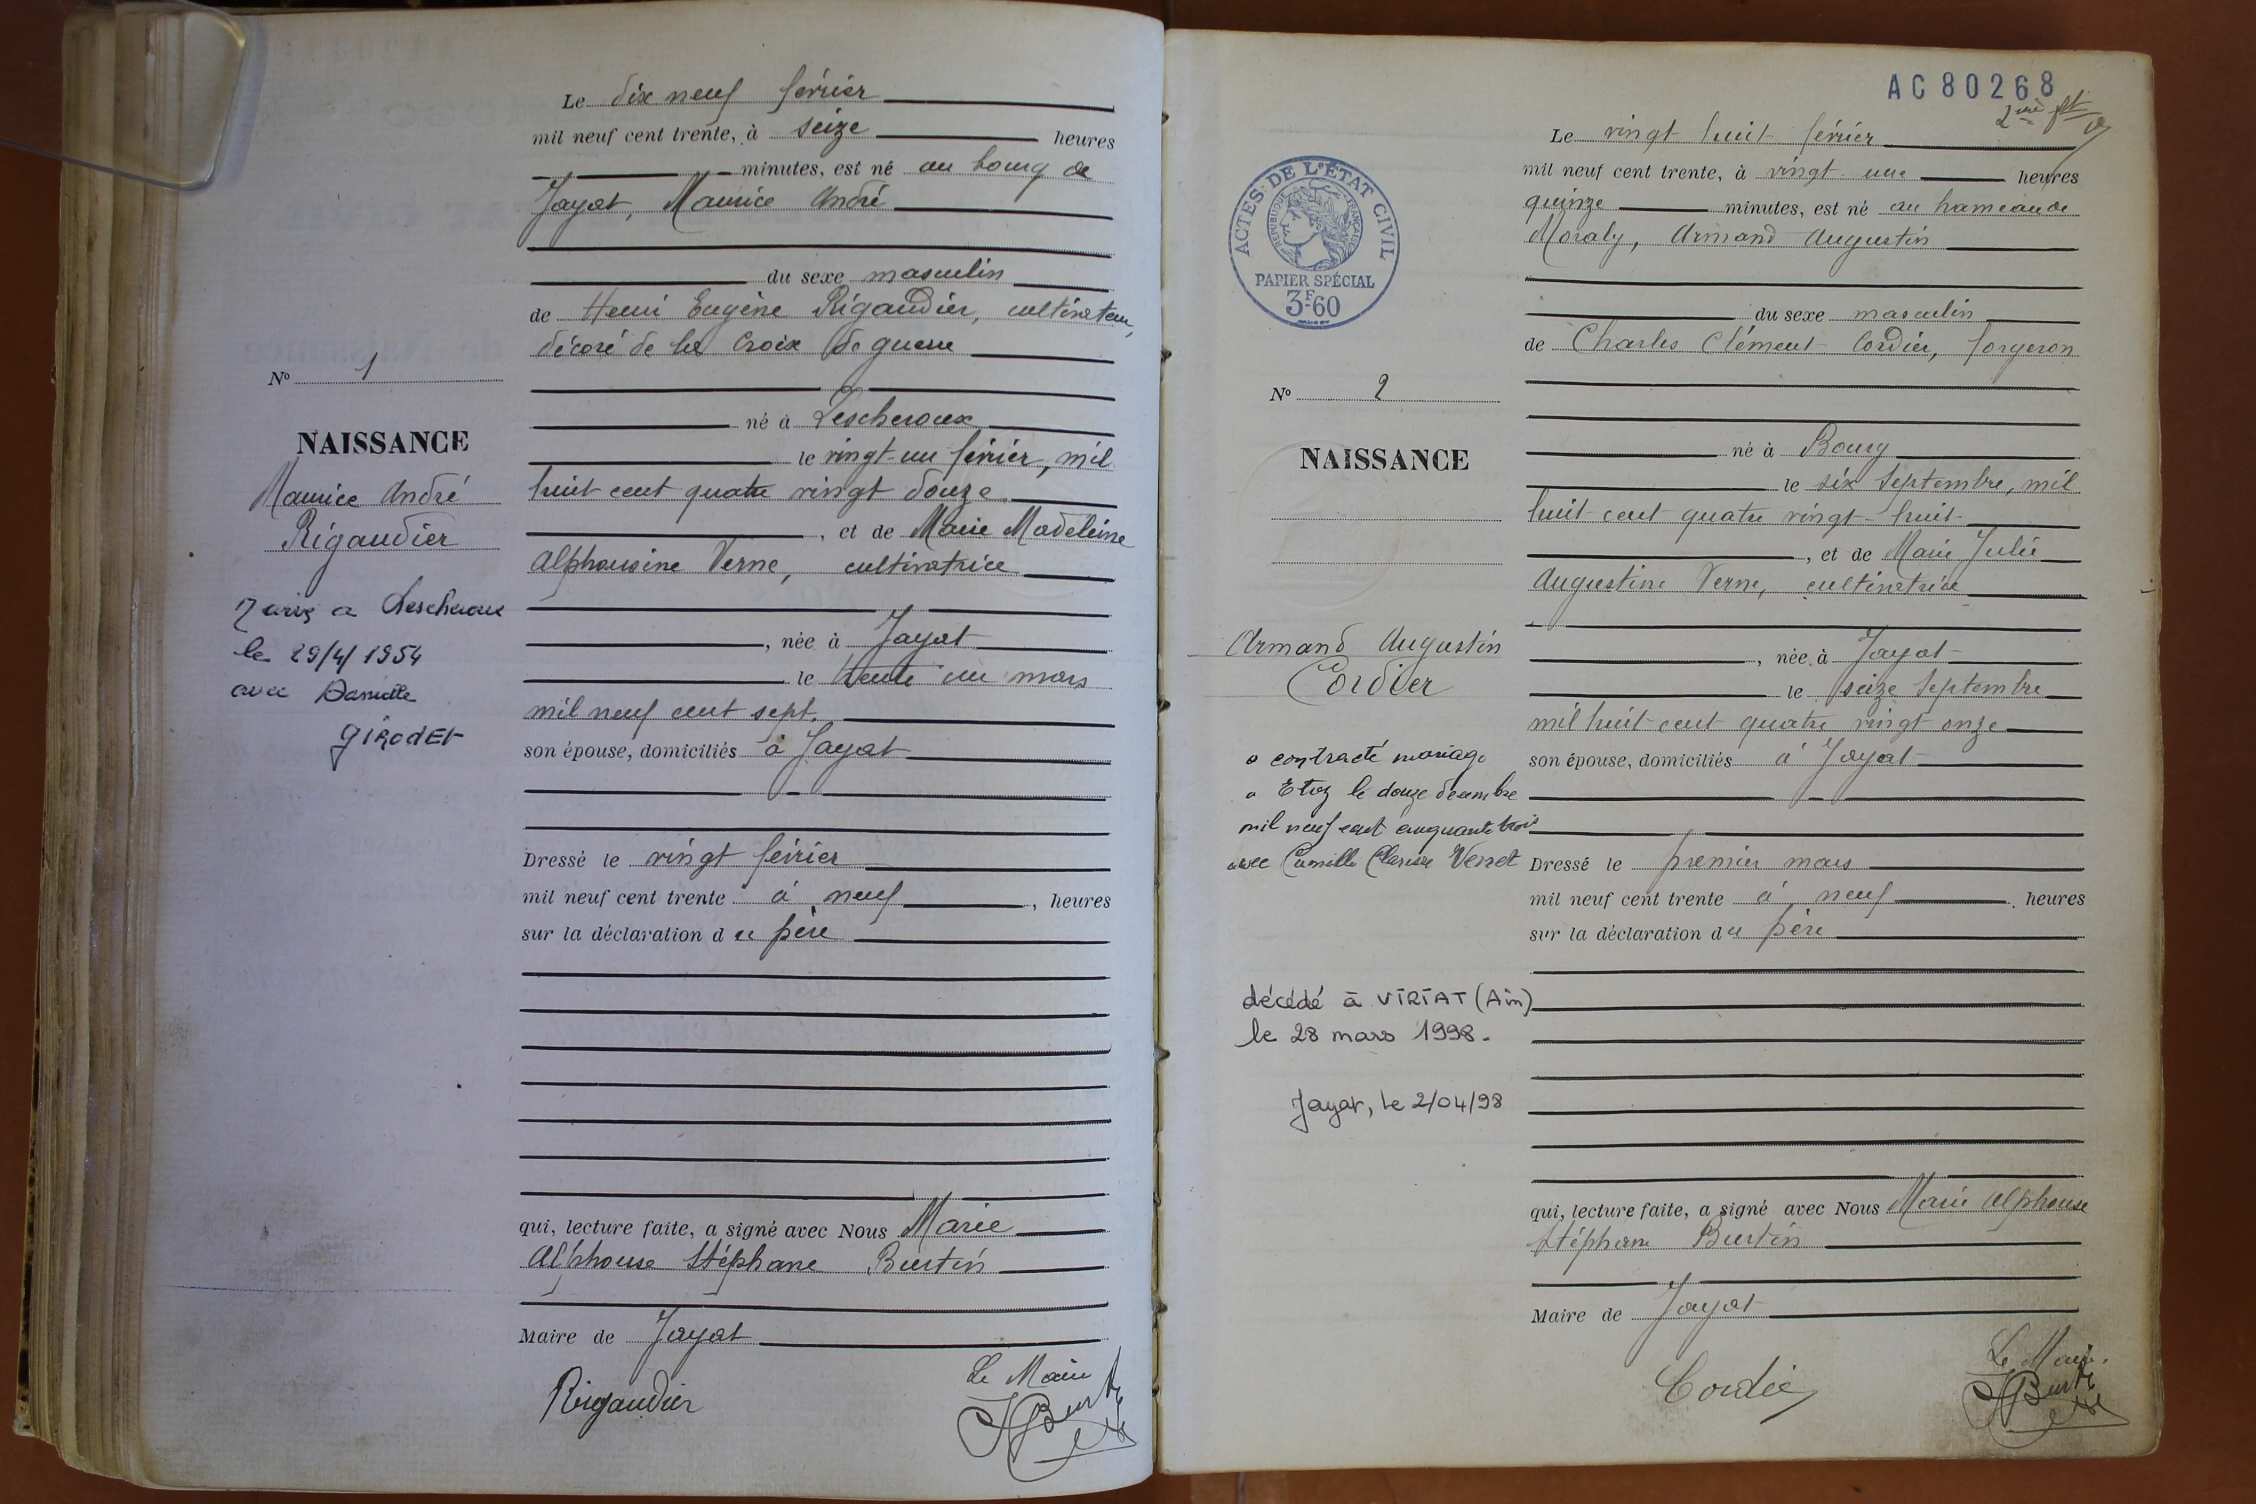 Le dix neuf février
mil neuf cent trente, à seize heures
minutes, est né au bourg de
Jayat, Maurice André
du sexe masculin
de Henri Eugène Rigaudier, cultivateur,
décoré de la Croix de guerre
né à Lescheroux
le vingt-un février, mil
huit cent quatre vingt douze
, et de Marie Madeleine
Alphonsine Verne, cultivatrice
, née à Jayat
le trente un mars
mil neuf cent sept.
son épouse, domiciliés à Jayat
Dressé le vingt février
mil neuf cent trente à neuf, heures
sur la déclaration du père
qui, lecture faite, a signé avec Nous Marie
Alphonse Stéphane Burtin
Maire de Jayat
Rigaudier
Le Maire
Burtin
No 1
NAISSANCE
Maurice André
Rigaudier
Marié a Lescheroux
le 29/4/1954
avec Danielle
GIRODET
AC 80268
Le vingt huit février
mil neuf cent trente, à vingt une heures
quinze minutes, est né au hameau de
Moraly, Armand Augustin
du sexe masculin
de Charles Clément Cordier, forgeron
né à Bourg
le six Septembre, mil
huit cent quatre vingt-huit
, et de Marie Julie
Augustine Verne, cultivatrice
, née à Jayat
le seize Septembre
mil huit cent quatre vingt onze
son épouse, domiciliés à Jayat
Dressé le premier mars
mil neuf cent trente à neuf heures
sur la déclaration du père
qui, lecture faite, a signé avec Nous Marie Alphonse
Stéphane Burtin
Maire de Jayat
Cordier
Le Maire.
Burtin
ACTES DE L'ÉTAT CIVIL
RÉPUBLIQUE FRANÇAISE
PAPIER SPÉCIAL
3F60
No 2
NAISSANCE
Armand Augustin
Cordier
a contracté mariage
a Etrez le douze décembre
mil neuf cent cinquante trois
avec Camille Clarisse Verret
décédé à VIRIAT (Ain)
le 28 mars 1998.
Jayat, le 2/04/98